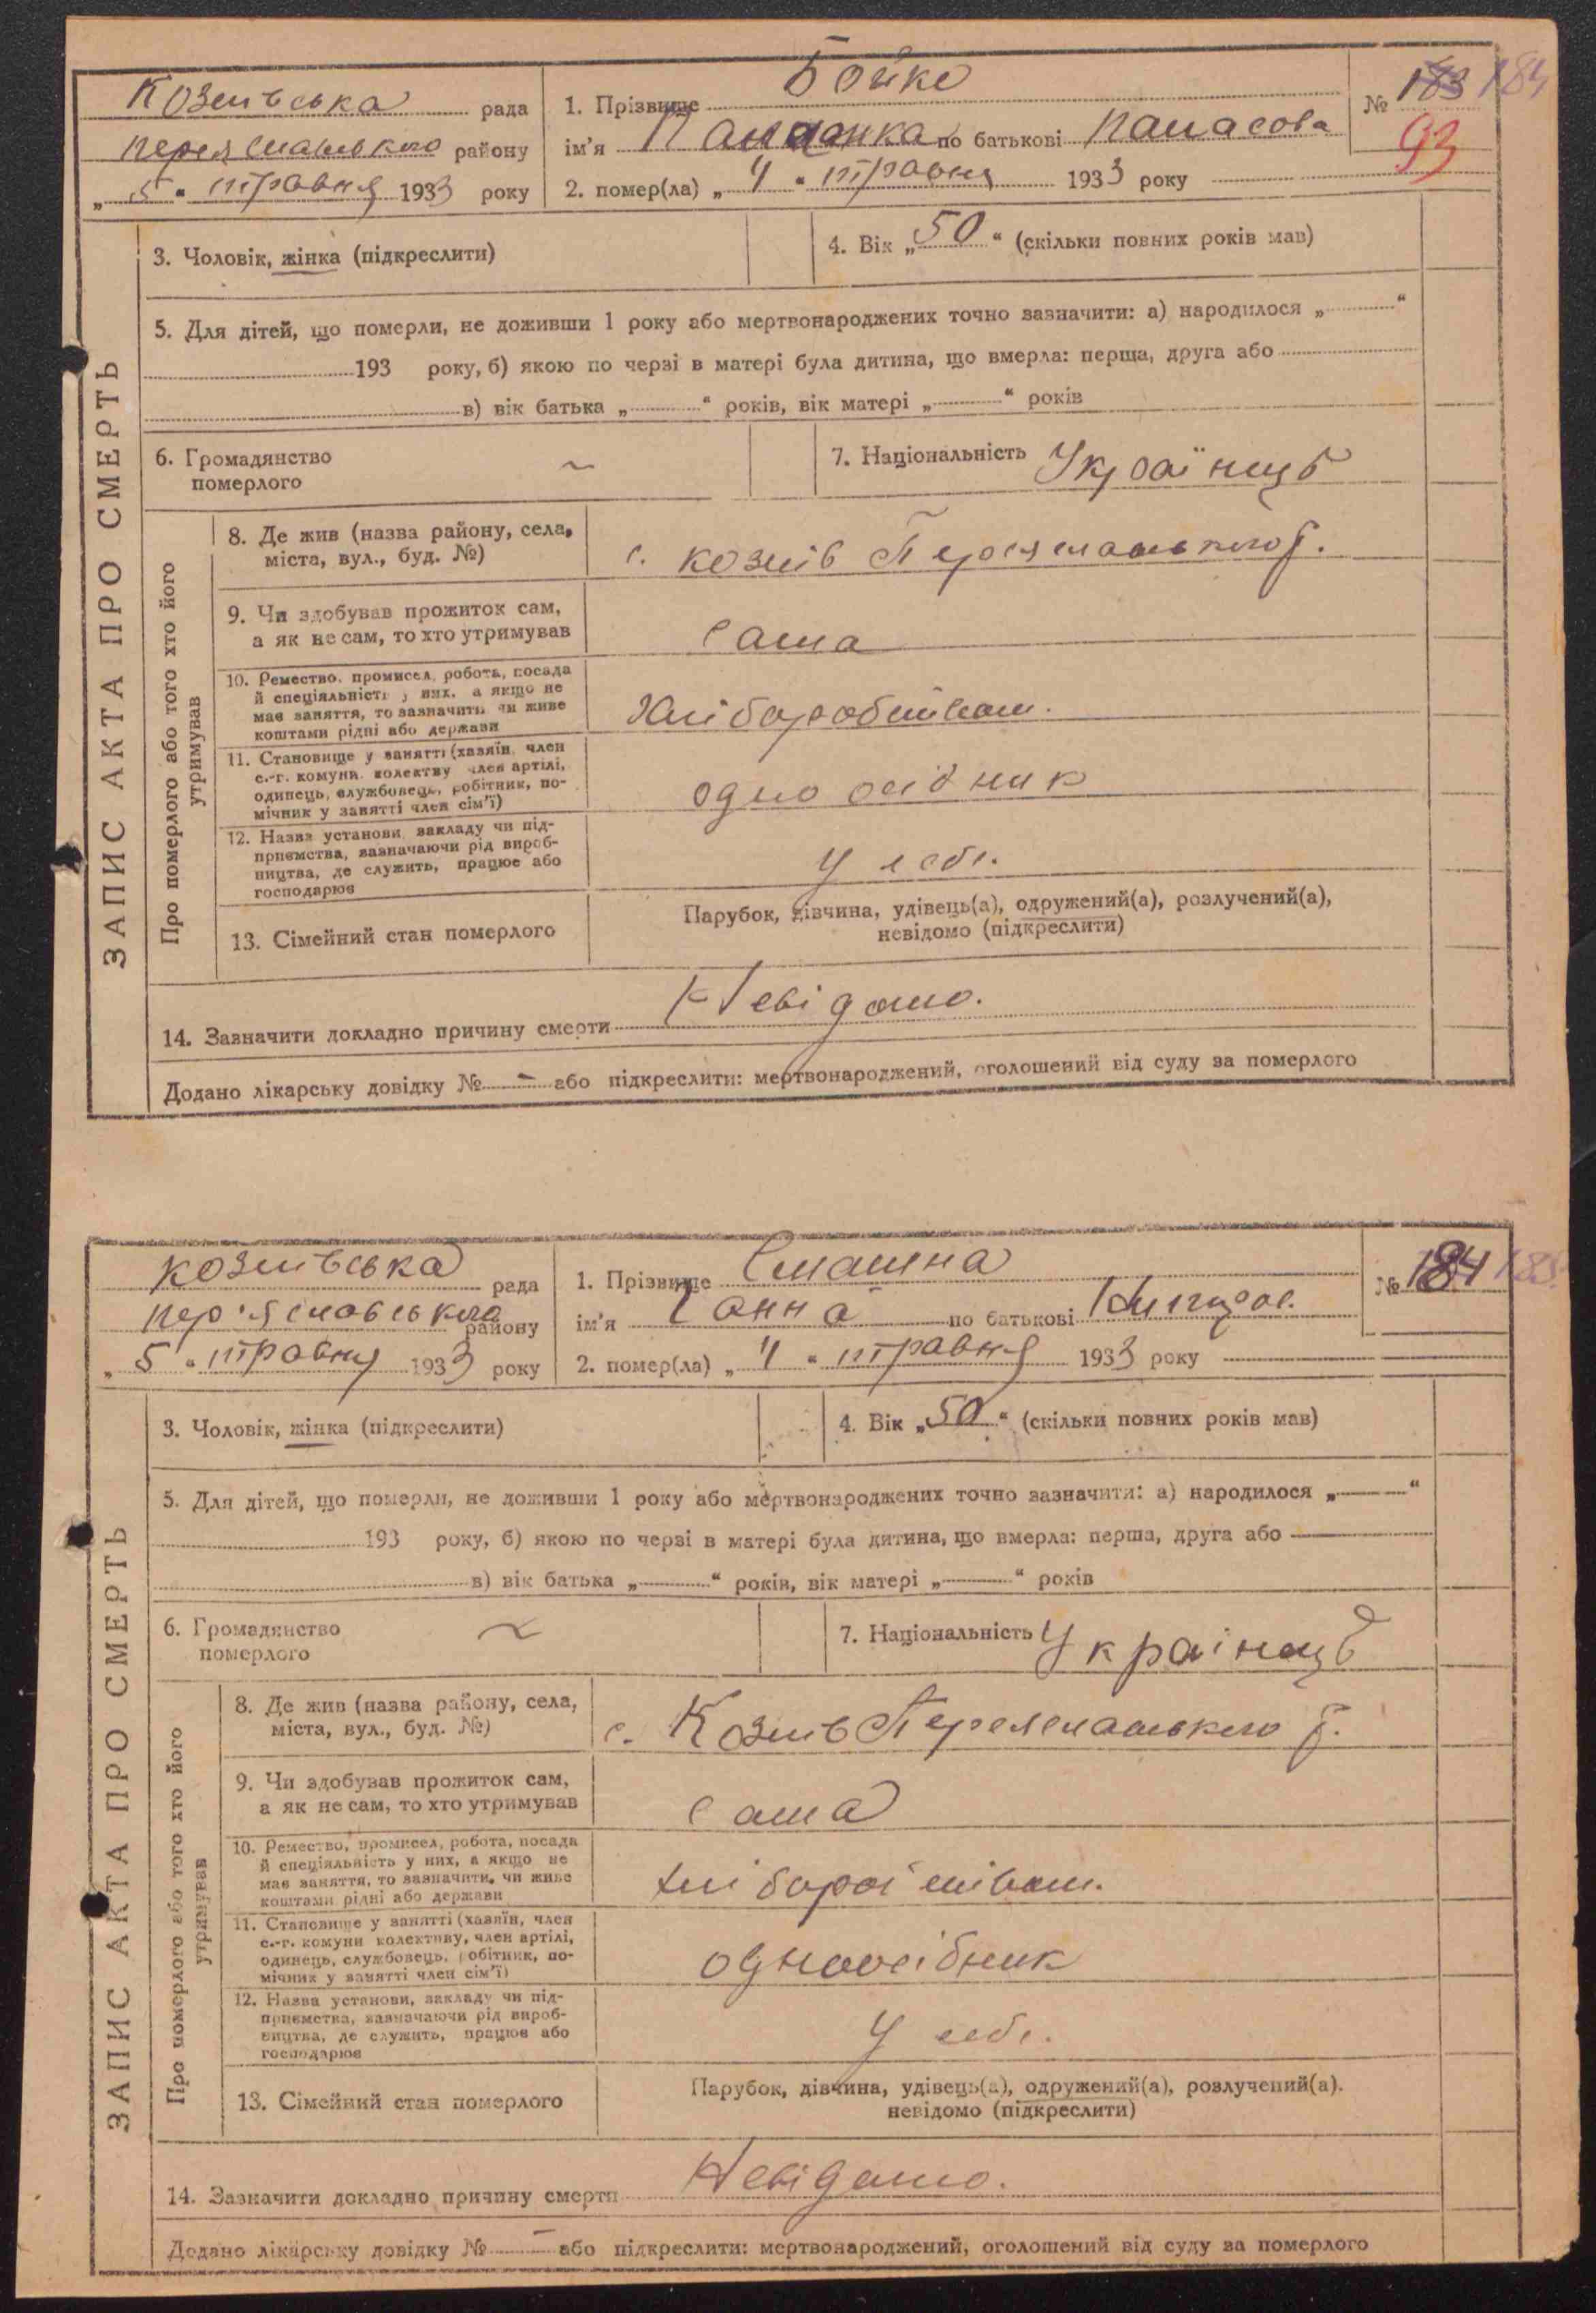 Козлівська рада
Переяславського району
„ 5 “ травня 1933 року
1. Прізвище Бойко
ім'я по батькові Панасова
2. помер(ла) „ 4 “ травня 1933 року
№ 183 184
93
ЗАПИС АКТА ПРО СМЕРТЬ
3. Чоловік, жінка (підкреслити)
4. Вік „ 50 “ (скільки повних років мав)
5. Для дітей, що померли, не доживши 1 року або мертвонароджених точно зазначити: а) народилося „ “
193 року, б) якою по черзі в матері була дитина, що вмерла: перша, друга або
в) вік батька „ “ років, вік матері „ “ років
6. Громадянство
померлого
~
7. Національність Українець
Про померлого або того хто його
утримував
8. Де жив (назва району, села,
міста, вул., буд. №)
с. Козлів Переяславського р.
9. Чи здобував прожиток сам,
а як не сам, то хто утримував
сама
10. Ремество, промисел, робота, посада
й спеціяльність у них, а якщо не
має заняття, то зазначити чи живе
коштами рідні або держави
11. Становище у занятті (хазяїн, член
с.-г. комуни, колективу член артілі,
одинець, службовець, робітник, по-
мічник у занятті член сім'ї)
одноосібник
12. Назва установи, закладу чи під-
приємства, зазначаючи рід вироб-
ництва, де служить, працює або
господарює
у себе.
13. Сімейний стан померлого
Парубок, дівчина, удівець(а), одружений(а), розлучений(а),
невідомо (підкреслити)
14. Зазначити докладно причину смерти Невідомо.
Додано лікарську довідку № – або підкреслити: мертвонароджений, оголошений від суду за померлого
Козлівська рада
Пер'яславського району
„ 5 “ травня 1933 року
1. Прізвище
ім'я Ганна по батькові
2. помер(ла) „ 4 “ травня 1933 року
№ 184 185
ЗАПИС АКТА ПРО СМЕРТЬ
3. Чоловік, жінка (підкреслити)
4. Вік „ 50 “ (скільки повних років мав)
5. Для дітей, що померли, не доживши 1 року або мертвонароджених точно зазначити: а) народилося „ “
193 року, б) якою по черзі в матері була дитина, що вмерла: перша, друга або
в) вік батька „ “ років, вік матері „ “ років
6. Громадянство
померлого
~
7. Національність Українець
Про померлого або того хто його
утримував
8. Де жив (назва району, села,
міста, вул., буд. №)
с. Козлів Переяславського р.
9. Чи здобував прожиток сам,
а як не сам, то хто утримував
сама
10. Ремество, промисел, робота, посада
й спеціяльність у них, а якщо не
має заняття, то зазначити, чи живе
коштами рідні або держави
11. Становище у занятті (хазяїн, член
с.-г. комуни колективу, член артілі,
одинець, службовець, робітник, по-
мічник у занятті член сім'ї)
одноосібник
12. Назва установи, закладу чи під-
приємства, зазначаючи рід вироб-
ництва, де служить, працює або
господарює
у себе.
13. Сімейний стан померлого
Парубок, дівчина, удівець(а), одружений(а), розлучений(а).
невідомо (підкреслити)
14. Зазначити докладно причину смерти Невідомо.
Додано лікарську довідку № – або підкреслити: мертвонароджений, оголошений від суду за померлого